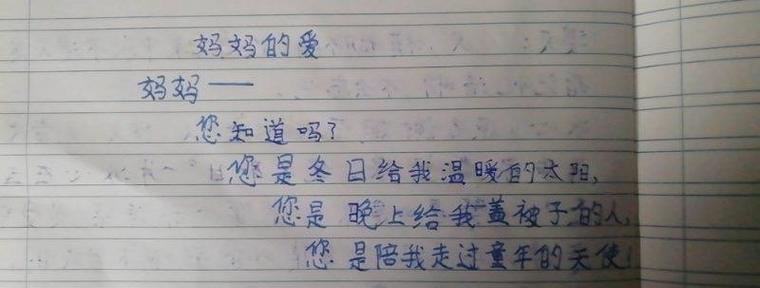 妈妈的爱
妈妈——
您知道吗?
您是冬日给我温暖的太阳,
您是晚上给我盖被子的人,
您是陪我走过童年的天使!